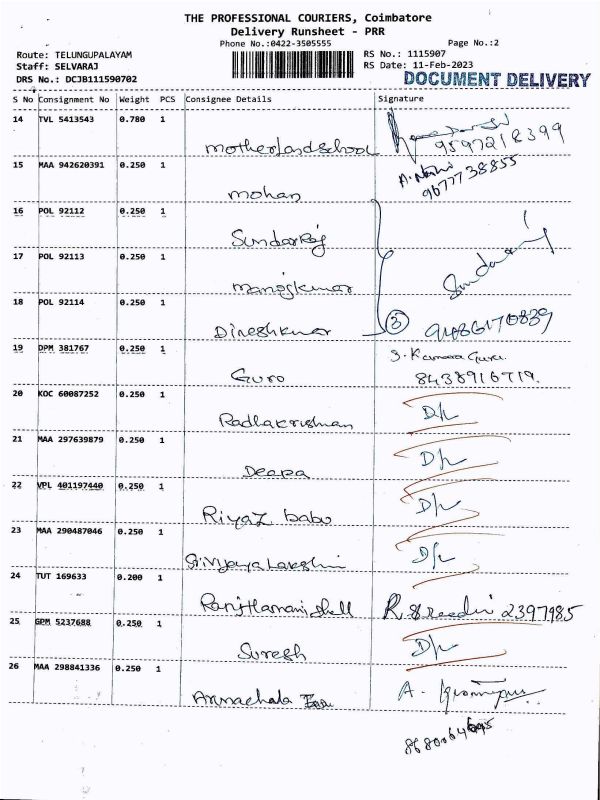 THE PROFESSIONAL COURIERS, Coimbatore
Delivery Runsheet - PRR
Phone No.:0422-3505555 Page No.:2
Route: TELUNGUPALAYAM RS No.: 1115907
Staff: SELVARAJ RS Date: 11-Feb-2023
DRS No.: DCJB111590702 DOCUMENT DELIVERY
S No Consignment No Weight PCS Consignee Details Signature
14 TVL 5413543 0.780 1
motherlandschool 9597218399
15 MAA 942620391 0.250 1
mohan 9677738855
16 POL 92112 0.250 1
Sundarraj
17 POL 92113 0.250 1
manojkumar Sundararaj
18 POL 92114 0.250 1
Dineshkumar 3 9486170839
19 DPM 381767 0.250 1 S. Kumara Guru.
Guro 8438916719.
20 KOC 60087252 0.250 1 D/L
Radhakrishnan
21 MAA 297639879 0.250 1 D/L
Deepa
22 VPL 401197440 0.250 1 D/L
Riyaz babu
23 MAA 290487046 0.250 1 D/L
Srivijayalakshmi
24 TUT 169633 0.200 1
2397985
25 GPM 5237688 0.250 1 D/L
Suresh
26 MAA 298841336 0.250 1
Arunachala A.